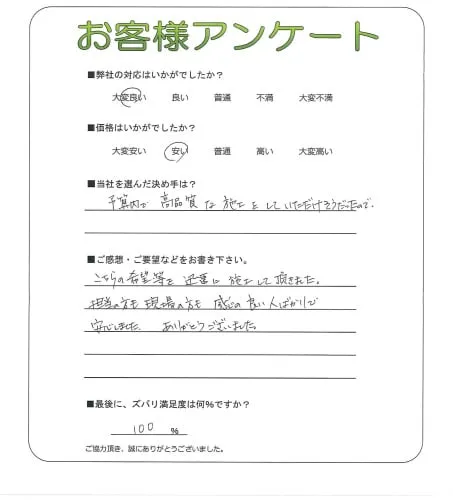 お客様アンケート
■弊社の対応はいかがでしたか？
大変良い 良い 普通 不満 大変不満
■価格はいかがでしたか？
大変安い 安い 普通 高い 大変高い
■当社を選んだ決め手は？
予算内で 高品質な 施工をしていただけそうだったので。
■ご感想・ご要望などをお書き下さい。
こちらの希望等を 迅速に 施工して頂きました。
担当の方も 現場の方も 感じの良い人ばかりで
安心しました。 ありがとうございました。
■最後に、ズバリ満足度は何％ですか？
100 ％
ご協力頂き、誠にありがとうございました。